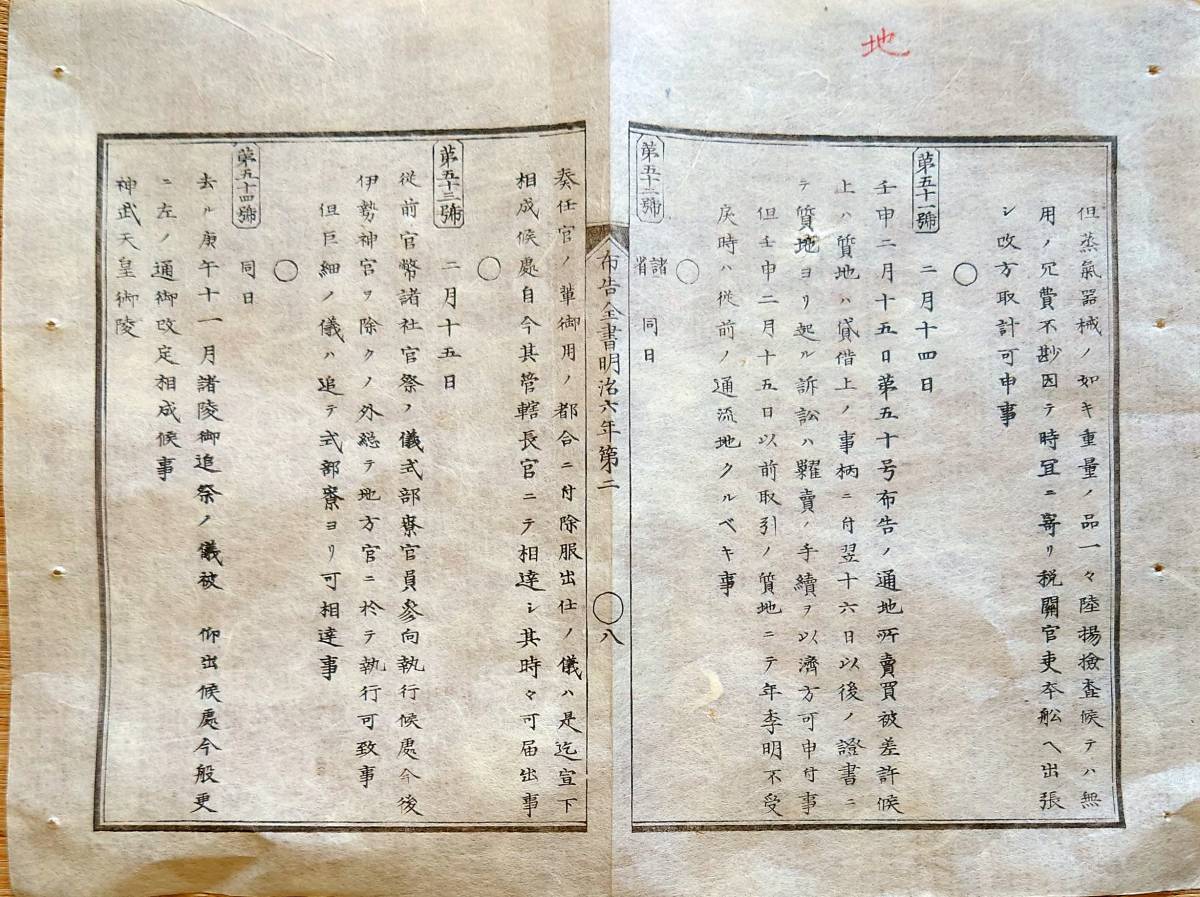 地
但蒸氣器械ノ如キ重量ノ品一々陸揚撿査候テハ無
用ノ冗費不尠因テ時冝ニ寄リ税關官吏本舩ヘ出張
シ改方取計可申事
〇
第五十一號 二月十四日
壬申二月十五日第五十号布告ノ通地所賣買被差許候
上ハ質地ハ貸借上ノ事柄ニ付翌十六日以後ノ證書ニ
テ質地ヨリ起ル訴訟ハ糶賣ノ手續ヲ以濟方可申付事
但壬申二月十五日以前取引ノ質地ニテ年季明不受
戻時ハ従前ノ通流地タルベキ事
〇
第五十二號 諸省 同日
布告全書明治六年第二 〇八
奏任官ノ輩御用ノ都合ニ付除服出仕ノ儀ハ是迄宣下
相成候處自今其管轄長官ニテ相達シ其時々可届出事
〇
第五十三號 二月十五日
従前官幣諸社官祭ノ儀式部寮官員參向執行候處今後
伊勢神官ヲ除クノ外総テ地方官ニ於テ執行可致事
但巨細ノ儀ハ追テ式部寮ヨリ可相達事
〇
第五十四號 同日
去ル庚午十一月諸陵御追祭ノ儀被 仰出候處今般更
ニ左ノ通御改定相成候事
神武天皇御陵